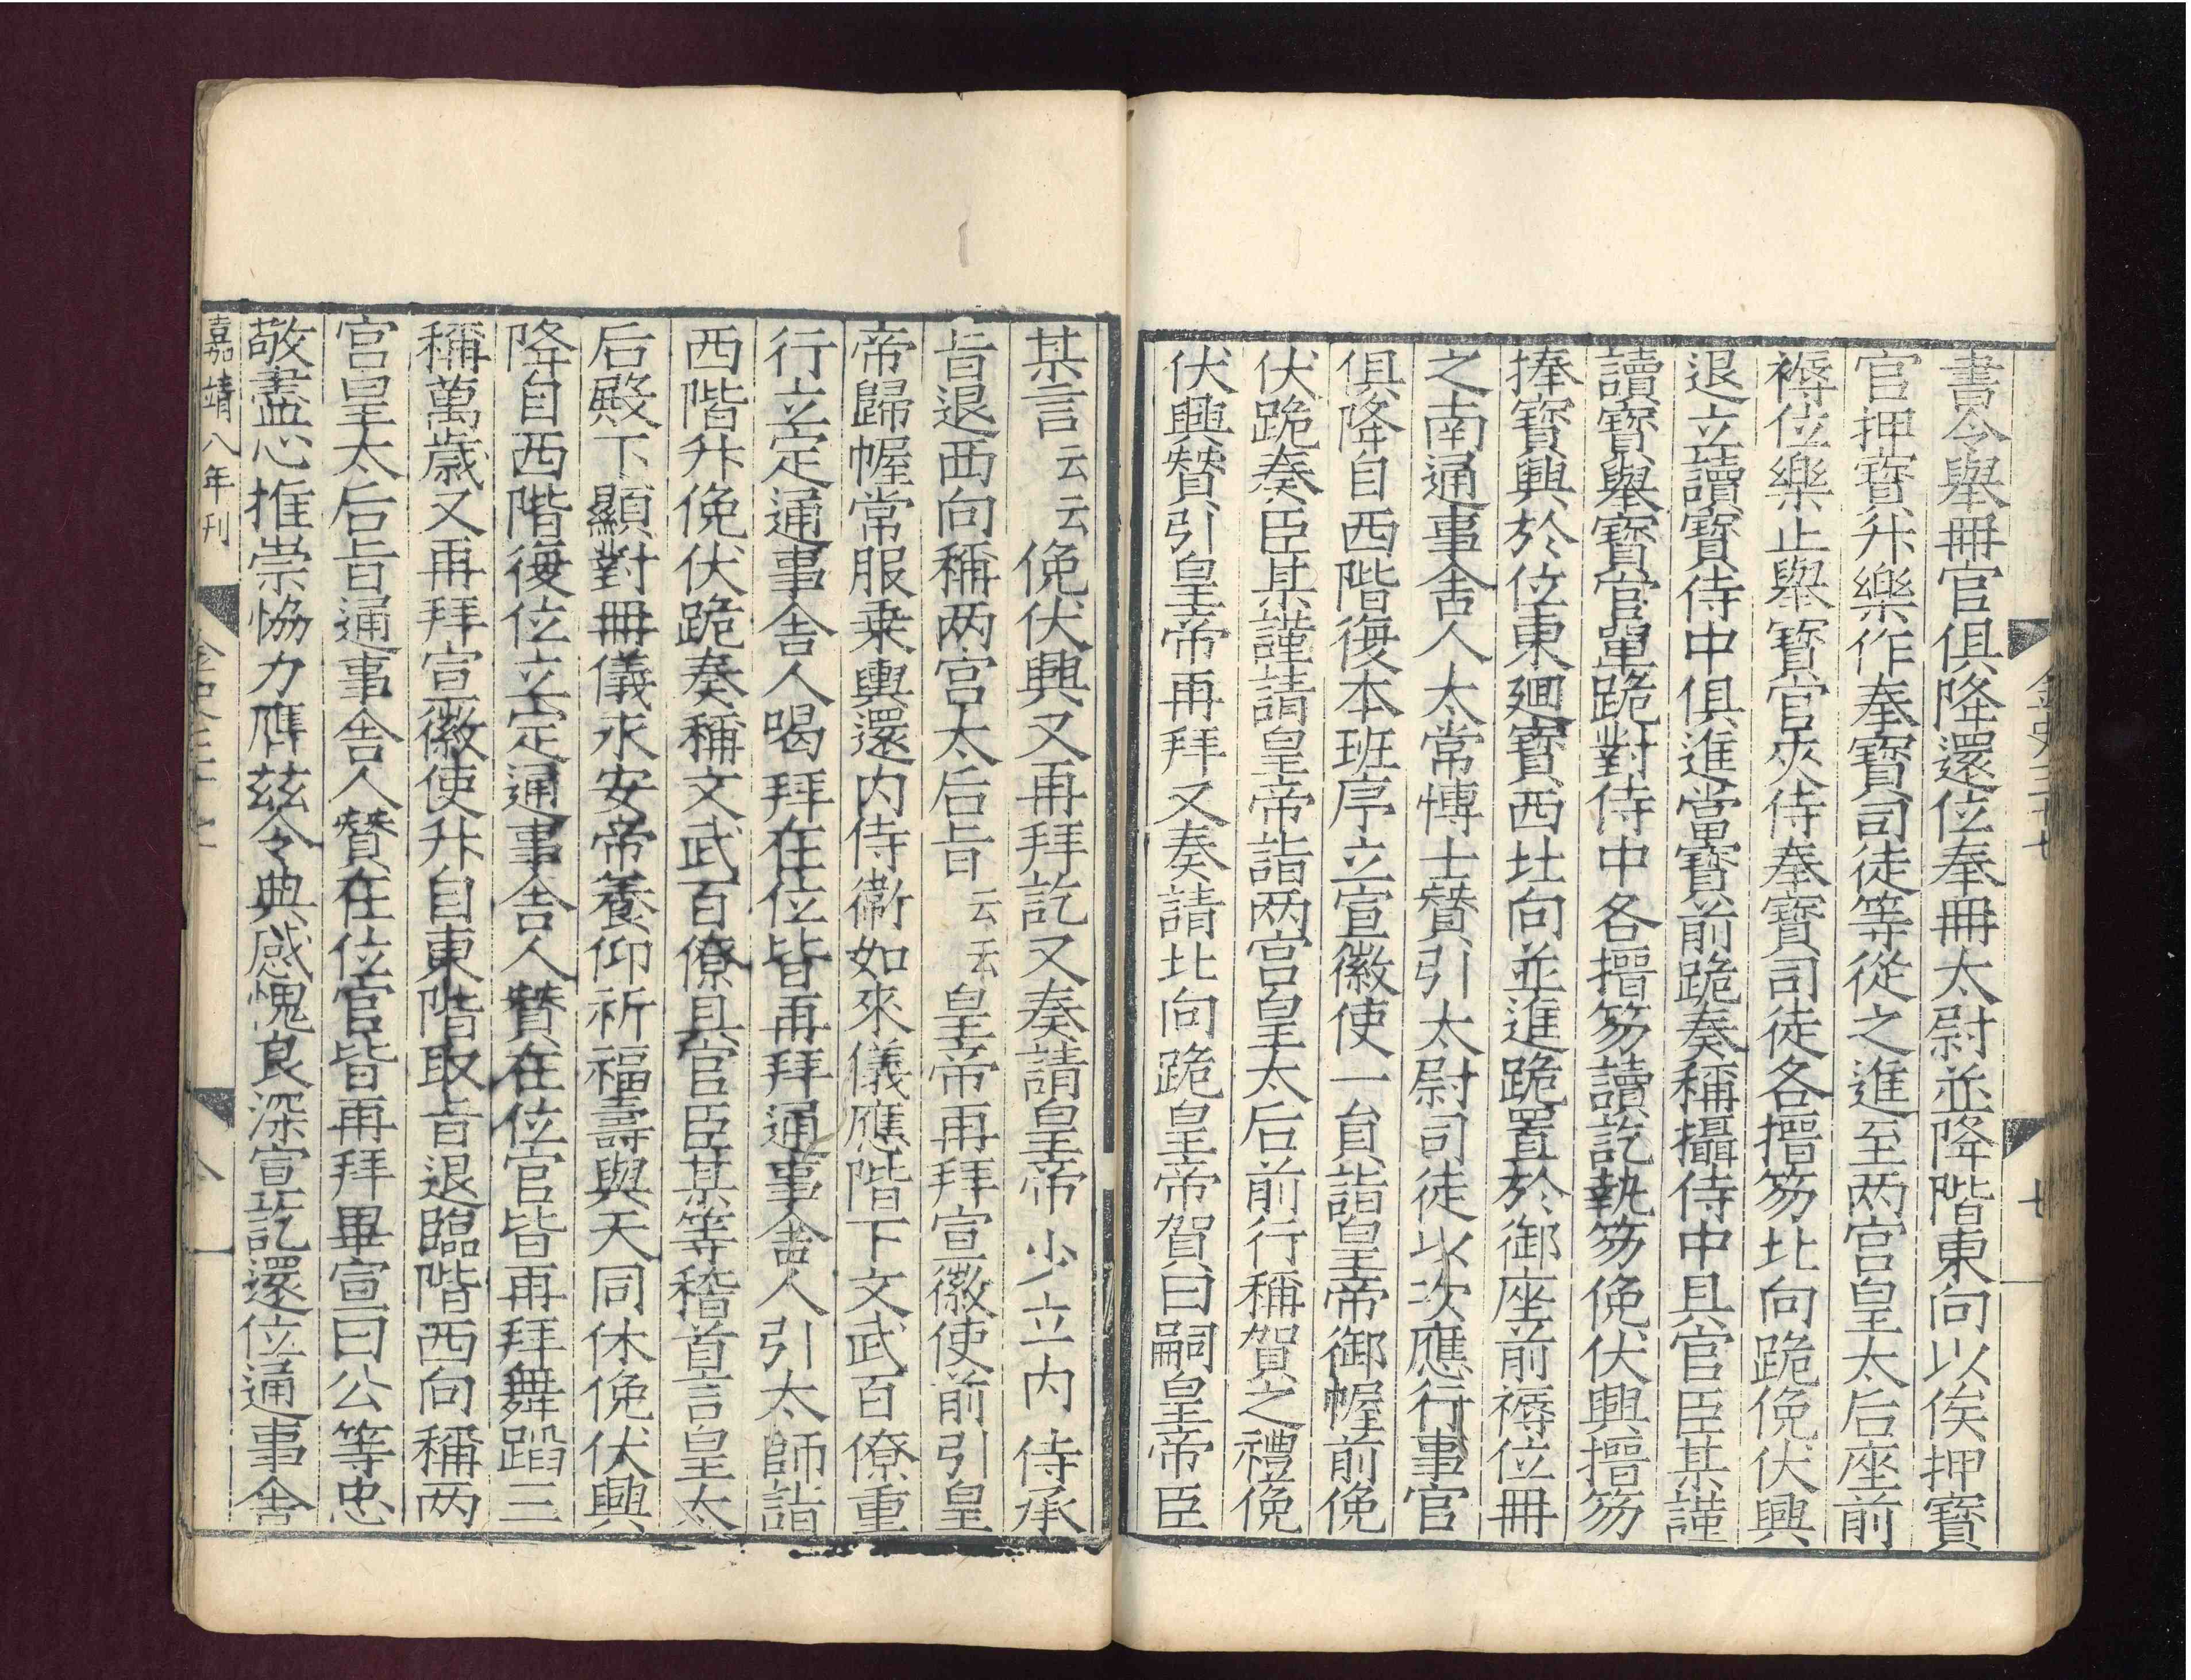 書令舉冊官俱降還位奉冊太尉並降階東向以俟押寶
官押寶升樂作奉寶司徒等從之進至两宫皇太后座前
褥位樂止舉寶官夾侍奉寶司徒各搢笏北向跪俛伏興
退立讀寶侍中俱進當寶前跪奏稱攝侍中具官臣某謹
讀寶舉寶官單跪對侍中各搢笏讀訖執笏俛伏興搢笏
捧寶興於位東廻寶西北向並進跪置於御座前褥位冊
之南通事舎人太常愽士贊引太尉司徒以次應行事官
俱降自西階復本班序立宣徽使一員詣皇帝御幄前俛
伏跪奏臣某謹請皇帝詣两宫皇太后前行稱賀之禮俛
伏興贊引皇帝再拜又奏請北向跪皇帝賀曰嗣皇帝臣
金史三十七
七
某言云云俛伏興又再拜訖又奏請皇帝少立内侍承
旨退西向稱两宫太后旨云云皇帝再拜宣徽使前引皇
帝歸幄常服乗輿還内侍衞如來儀應階下文武百僚重
行立定通事舎人喝拜在位皆再拜通事舎人引太師詣
西階升俛伏跪奏稱文武百僚具官臣某等稽首言皇太
后殿下顯對冊儀永安帝養仰祈福壽與天同休俛伏興
降自西階復位立定通事舎人贊在位官皆再拜舞蹈三
稱萬歲又再拜宣徽使升自東階取旨退臨階西向稱两
宫皇太后旨通事舎人贊在位官皆再拜畢宣曰公等忠
敬盡心推崇恊力膺兹令典感愧良深宣訖還位通事舎
嘉靖八年刊